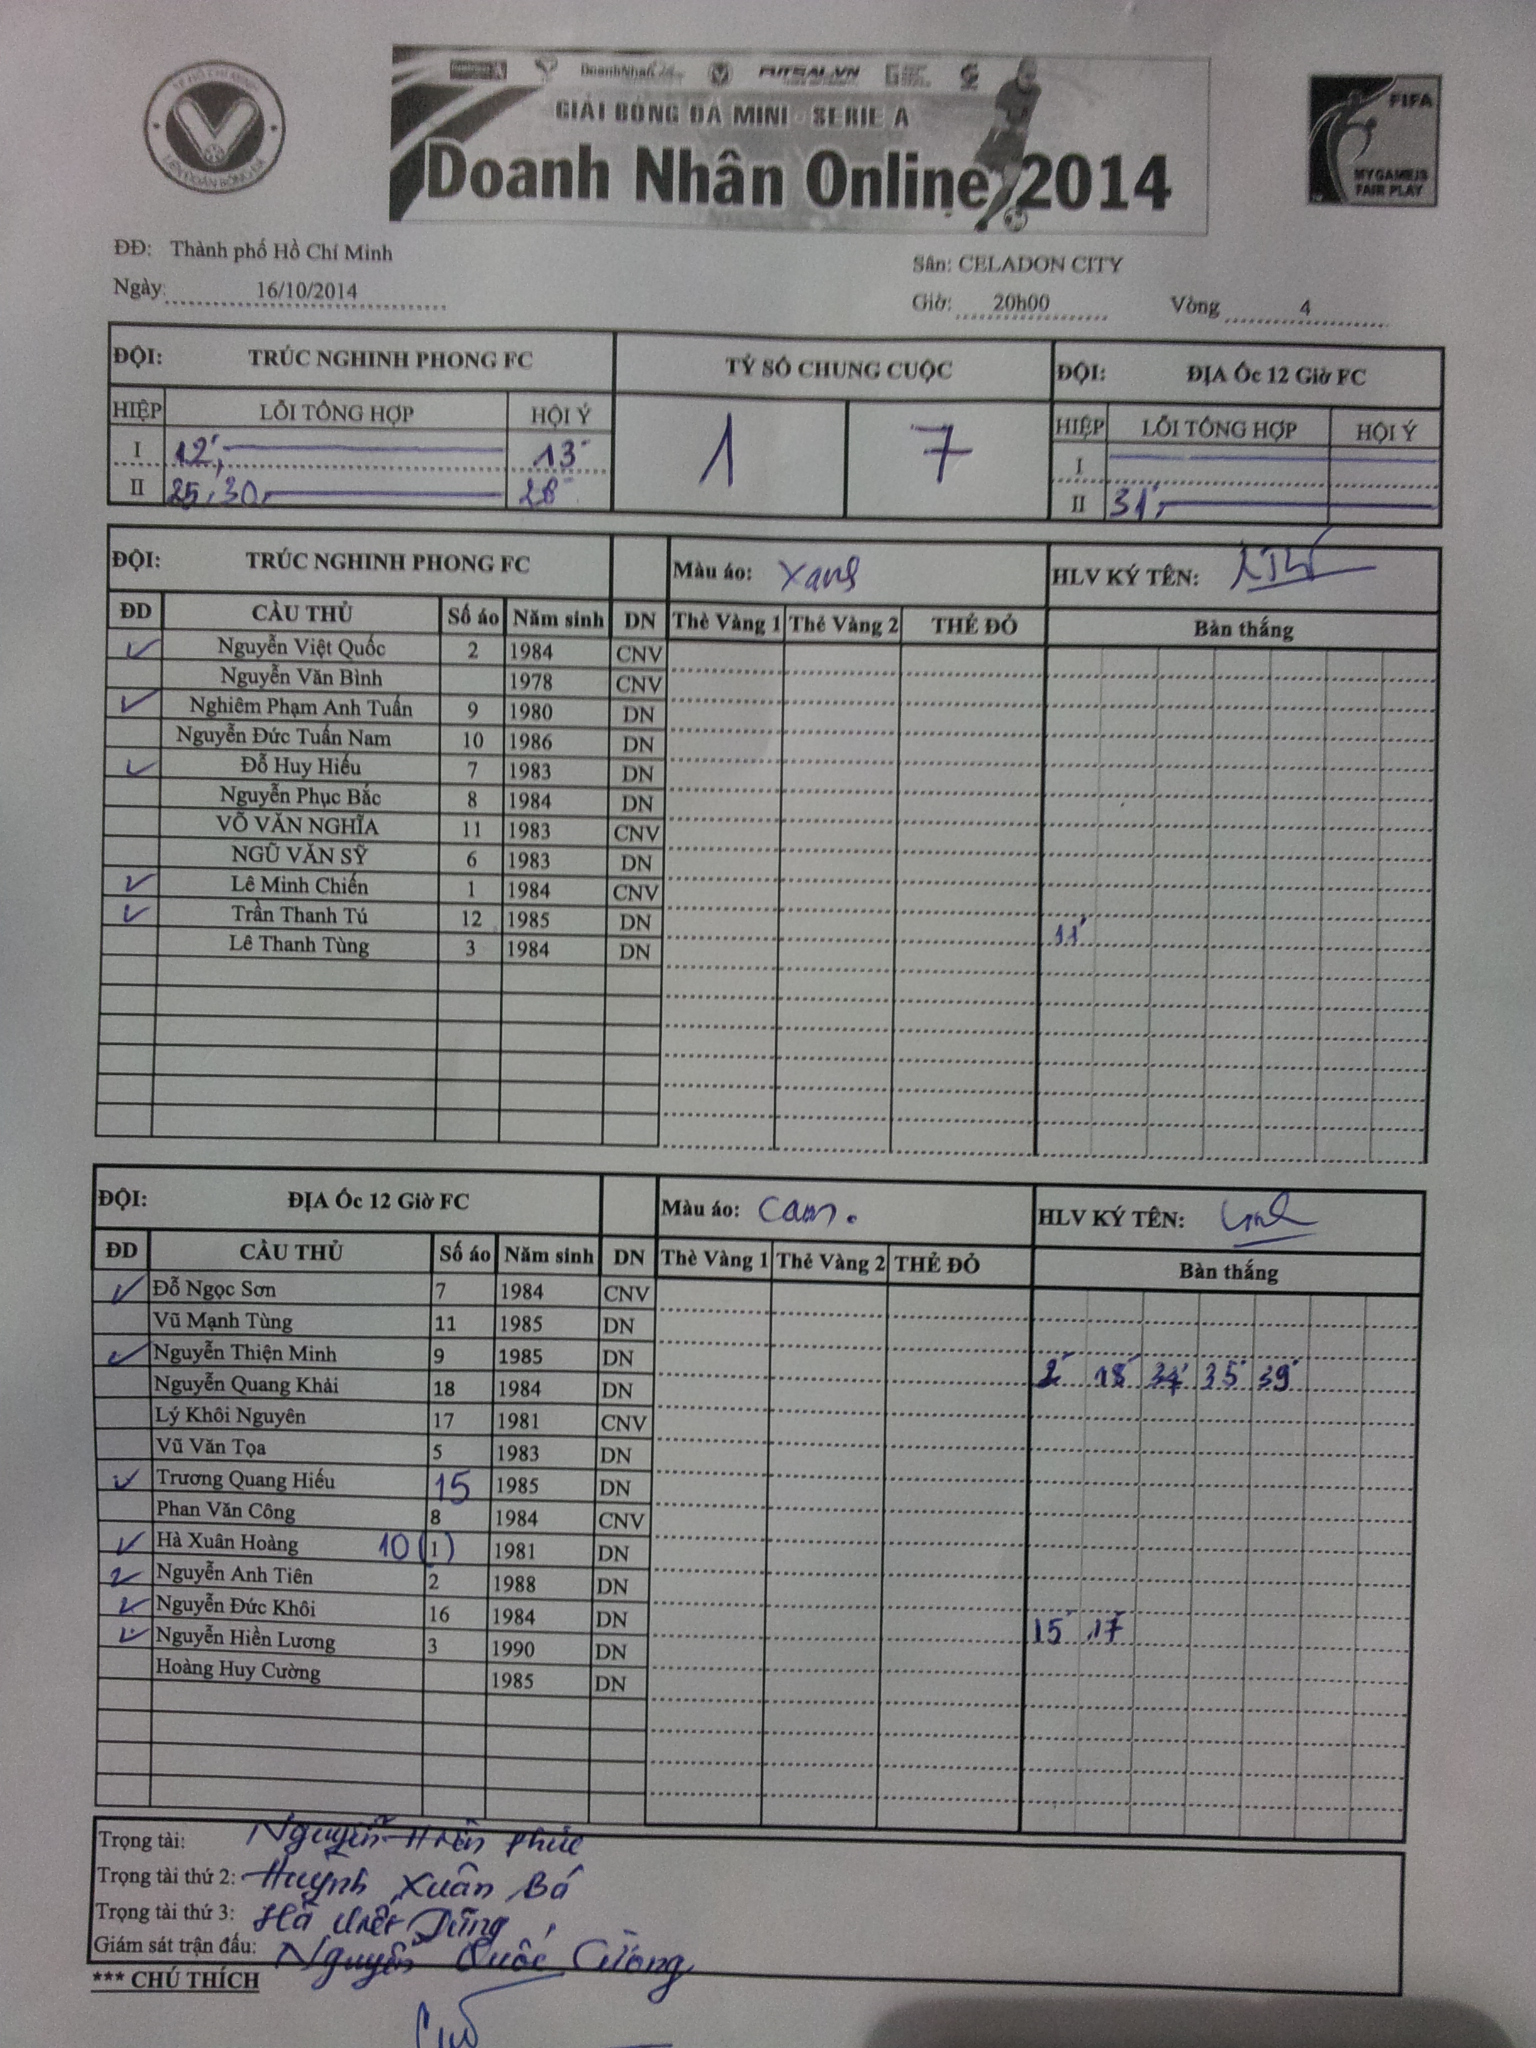 TP HỒ CHÍ MINH
LIÊN ĐOÀN BÓNG ĐÁ
FUTSAL.VN
GIẢI BÓNG ĐÁ MINI - SERIE A
Doanh Nhân Online 2014
FIFA
MY GAME IS
FAIR PLAY
ĐĐ: Thành phố Hồ Chí Minh
Sân: CELADON CITY
Ngày: 16/10/2014
Giờ: 20h00 Vòng 4
ĐỘI: TRÚC NGHINH PHONG FC TỶ SỐ CHUNG CUỘC ĐỘI: ĐỊA Ốc 12 Giờ FC
HIỆP LỖI TỔNG HỢP HỘI Ý 1 7 HIỆP LỖI TỔNG HỢP HỘI Ý
I 12', 13' I
II 25, 30, 28' II 31',
ĐỘI: TRÚC NGHINH PHONG FC Màu áo: Xanh HLV KÝ TÊN:
ĐD CẦU THỦ Số áo Năm sinh DN Thẻ Vàng 1 Thẻ Vàng 2 THẺ ĐỎ Bàn thắng
Nguyễn Việt Quốc 2 1984 CNV
Nguyễn Văn Bình 1978 CNV
Nghiêm Phạm Anh Tuấn 9 1980 DN
Nguyễn Đức Tuấn Nam 10 1986 DN
Đỗ Huy Hiếu 7 1983 DN
Nguyễn Phục Bắc 8 1984 DN
VÕ VĂN NGHĨA 11 1983 CNV
NGŨ VĂN SỸ 6 1983 DN
Lê Minh Chiến 1 1984 CNV
Trần Thanh Tú 12 1985 DN 11'
Lê Thanh Tùng 3 1984 DN
ĐỘI: ĐỊA Ốc 12 Giờ FC Màu áo: Cam. HLV KÝ TÊN:
ĐD CẦU THỦ Số áo Năm sinh DN Thẻ Vàng 1 Thẻ Vàng 2 THẺ ĐỎ Bàn thắng
Đỗ Ngọc Sơn 7 1984 CNV
Vũ Mạnh Tùng 11 1985 DN
Nguyễn Thiện Minh 9 1985 DN 2' 18' 34' 35' 39'
Nguyễn Quang Khải 18 1984 DN
Lý Khôi Nguyên 17 1981 CNV
Vũ Văn Tọa 5 1983 DN
Trương Quang Hiếu 15 1985 DN
Phan Văn Công 8 1984 CNV
Hà Xuân Hoàng 10 (1) 1981 DN
Nguyễn Anh Tiên 2 1988 DN
Nguyễn Đức Khôi 16 1984 DN 15' 17'
Nguyễn Hiền Lương 3 1990 DN
Hoàng Huy Cường 1985 DN
Trọng tài: Nguyễn Hiền Phúc
Trọng tài thứ 2: Huỳnh Xuân Bá
Trọng tài thứ 3: Hà Dũng
Giám sát trận đấu: Nguyễn Quốc Cường
*** CHÚ THÍCH